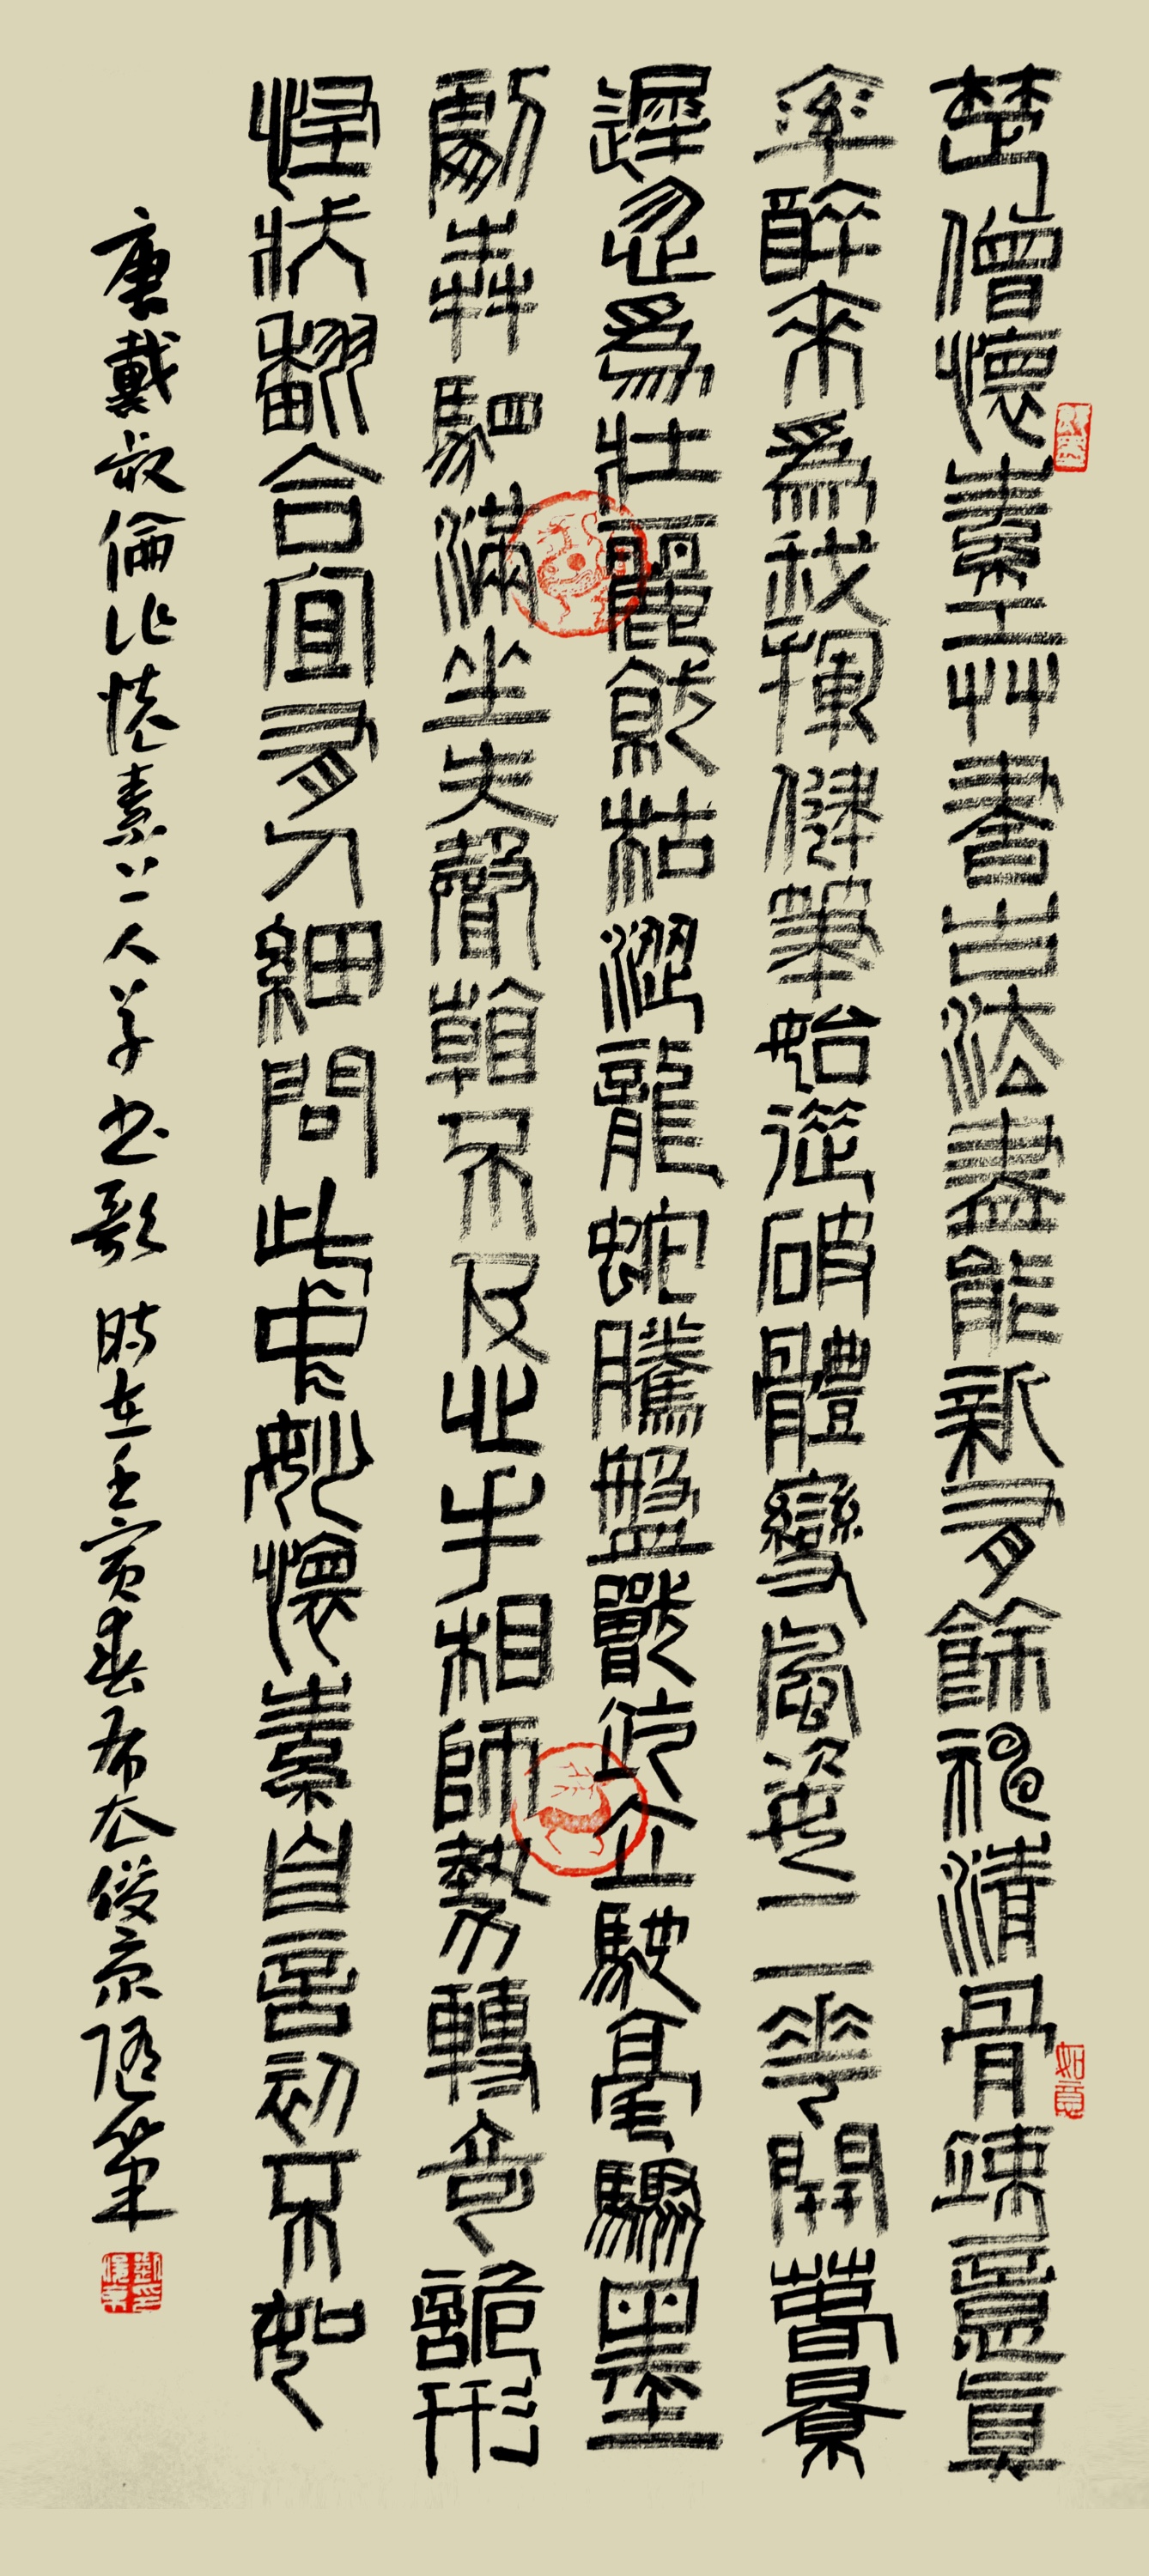 楚僧懷素工艸書古法盡能新有餘神清骨竦意真
率醉來爲我揮健筆始從破體變風姿一一花開春景
遲忽爲壯麗就枯澀龍蛇騰盤獸屹立馳毫驟墨
劇犇駟滿坐失聲看不及心手相師勢轉奇詭形
怪狀翻合宜有人細問此中妙懷素自言初不知
唐戴叔倫作懷素上人草書歌 時在壬寅春布衣俊京隨筆
如意